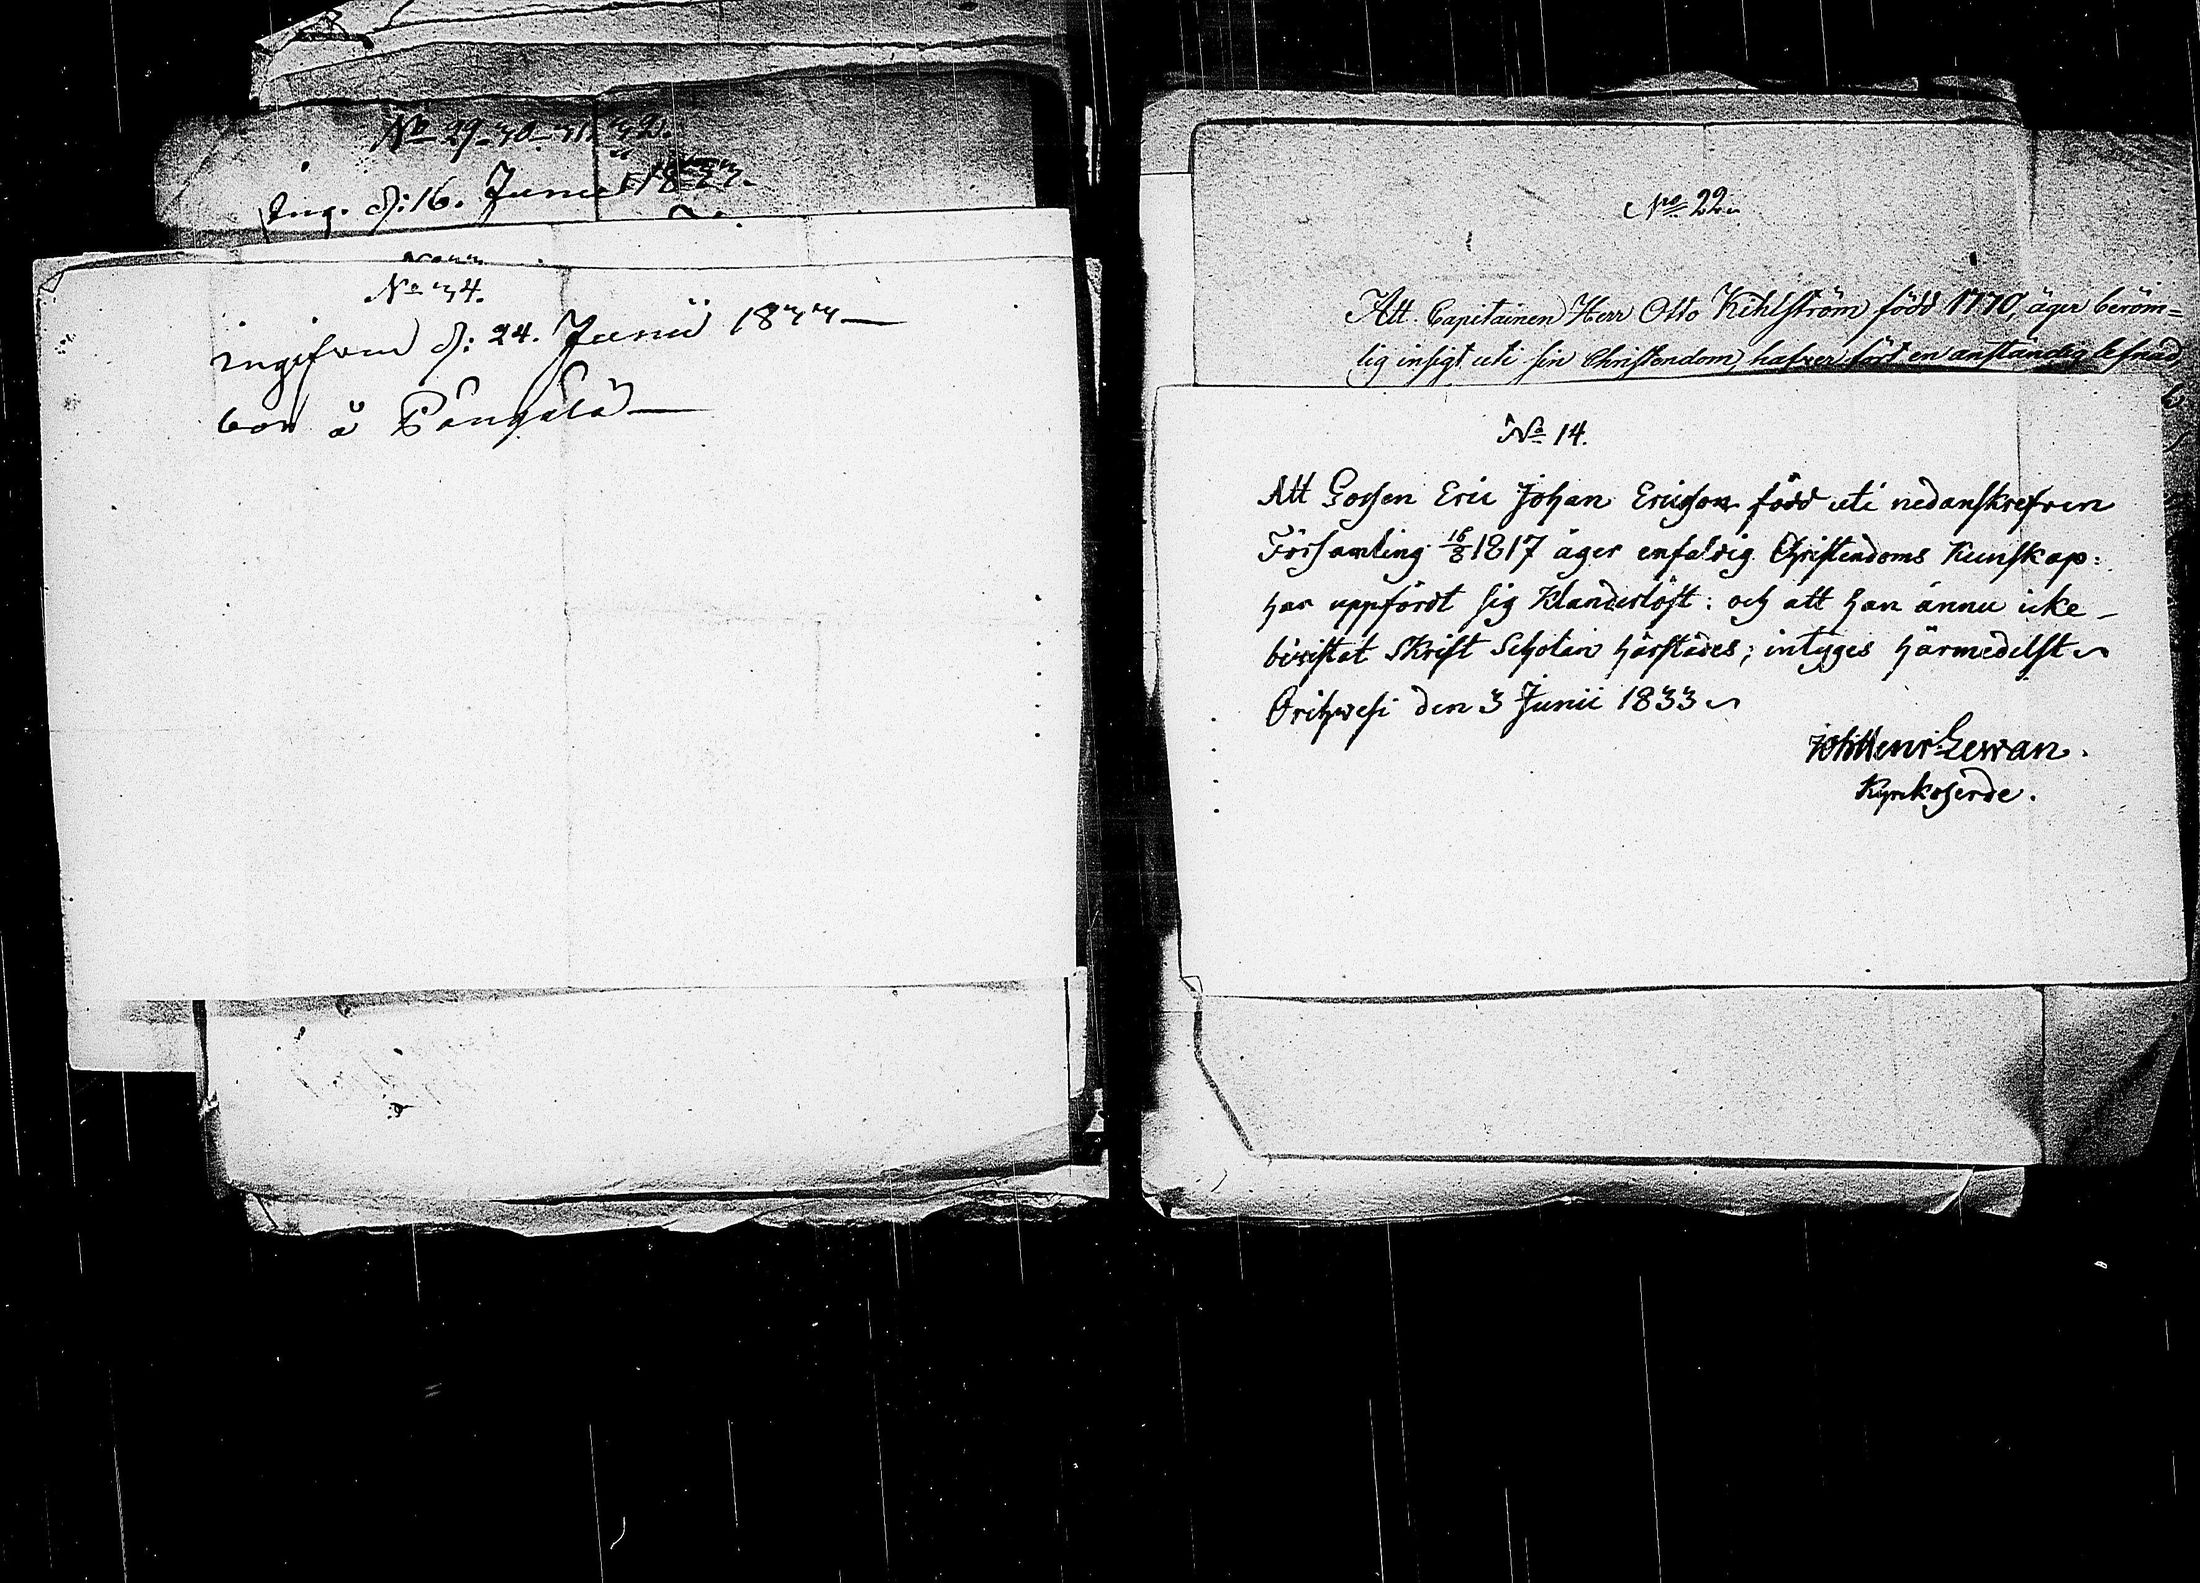 No 29-30-31.32.
Ing. d: 16. Junii 1833.
No 34.
ingifven d: 24. Junii 1833
bor å
No 22.
Att Capitainen Herr Otto Kihlström född 1770, äger beröm=
lig insigt uti sin Christendom, hafver fört en anständig lefnad,
No 14.
Att Gossen Eric Johan Ericson född uti nedanskrefven
Församling 16/8 1817 äger enfaldig Christendoms Kunskap:
har uppfördt sig Klanderlöst: och att han ännu icke
bivistat Skrift Scholan härstädes; intyges härmedelst
Orihvesi den 3 Junii 1833
Kyrkoherde.